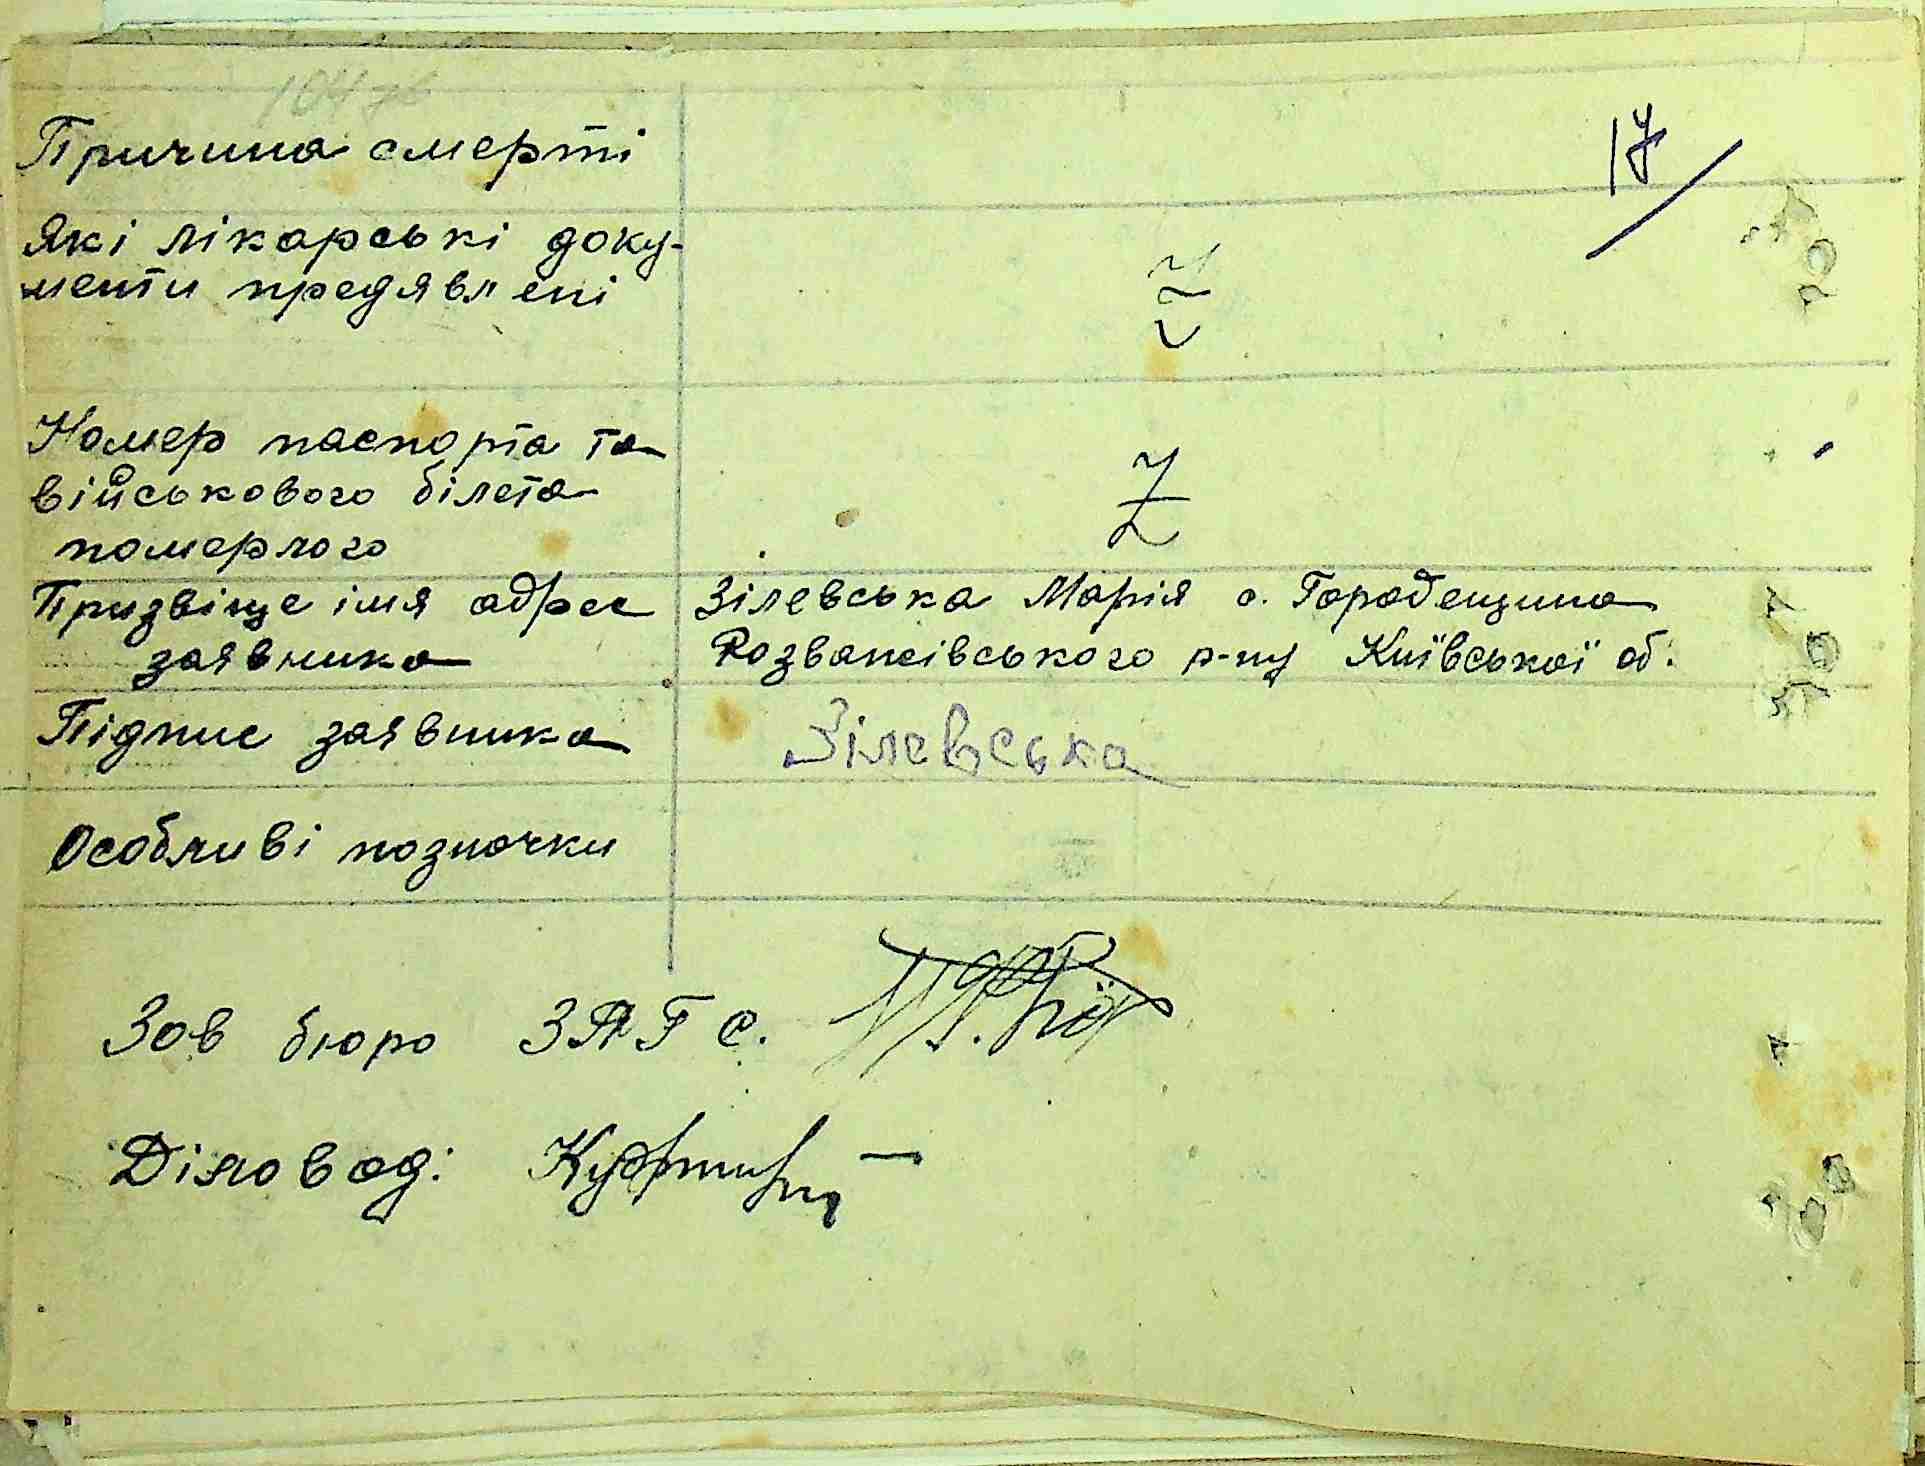 17
Причина смерті
Які лікарські доку-
менти предявлені
Номер паспорта та
військового білета
померлого
Призвіще імя адрес
заявника
Зілевська Марія с. Городещина
Розважівського р-ну Київської об.
Підпис заявника
Зілевська
Особливі позначки
Зов бюро ЗАГС.
Діловод: